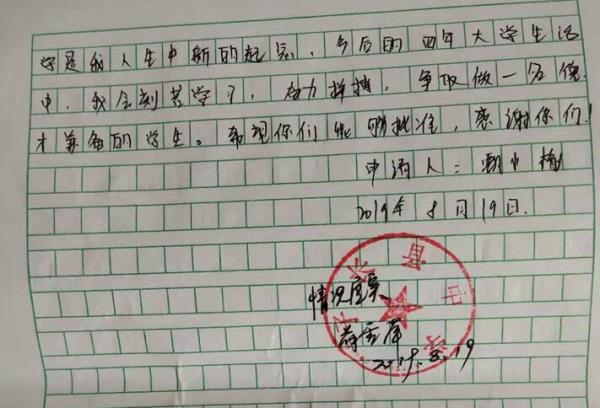 好是我人生中新的起点，今后的四年大学生活
中，我会刻苦学习，努力拼搏，争取做一名德
才兼备的学生。希望你们能够批准，感谢你们！
申请人：
2019年8月19日.
县中学
情况属实
2019.8.19